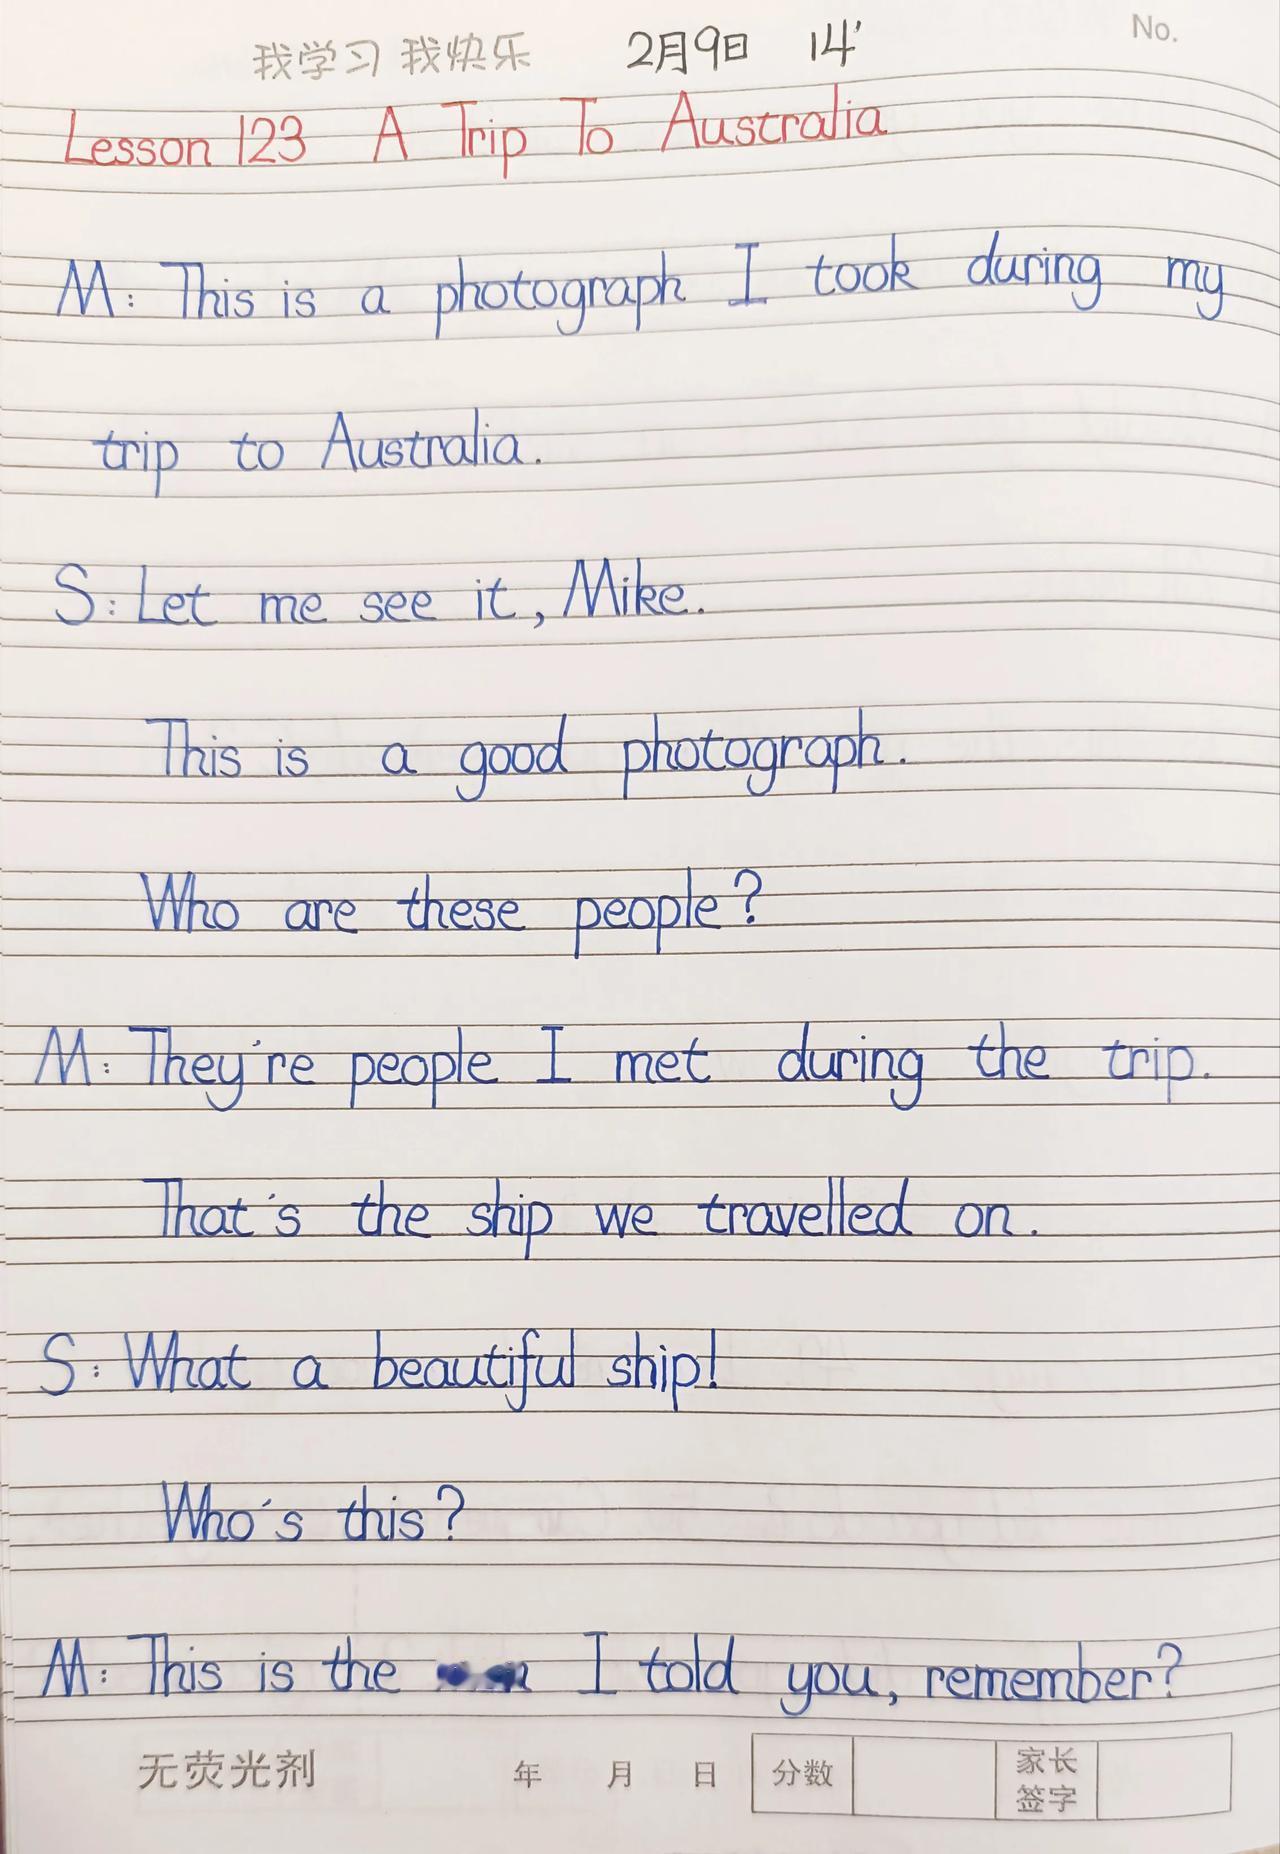 No.
我学习 我快乐 2月9日 14'
Lesson 123 A Trip To Australia
M: This is a photograph I took during my
trip to Australia.
S: Let me see it, Mike.
This is a good photograph.
Who are these people?
M: They're people I met during the trip.
That's the ship we travelled on.
S: What a beautiful ship!
Who's this?
M: This is the I told you, remember?
无荧光剂 年 月 日 分数 家长签字